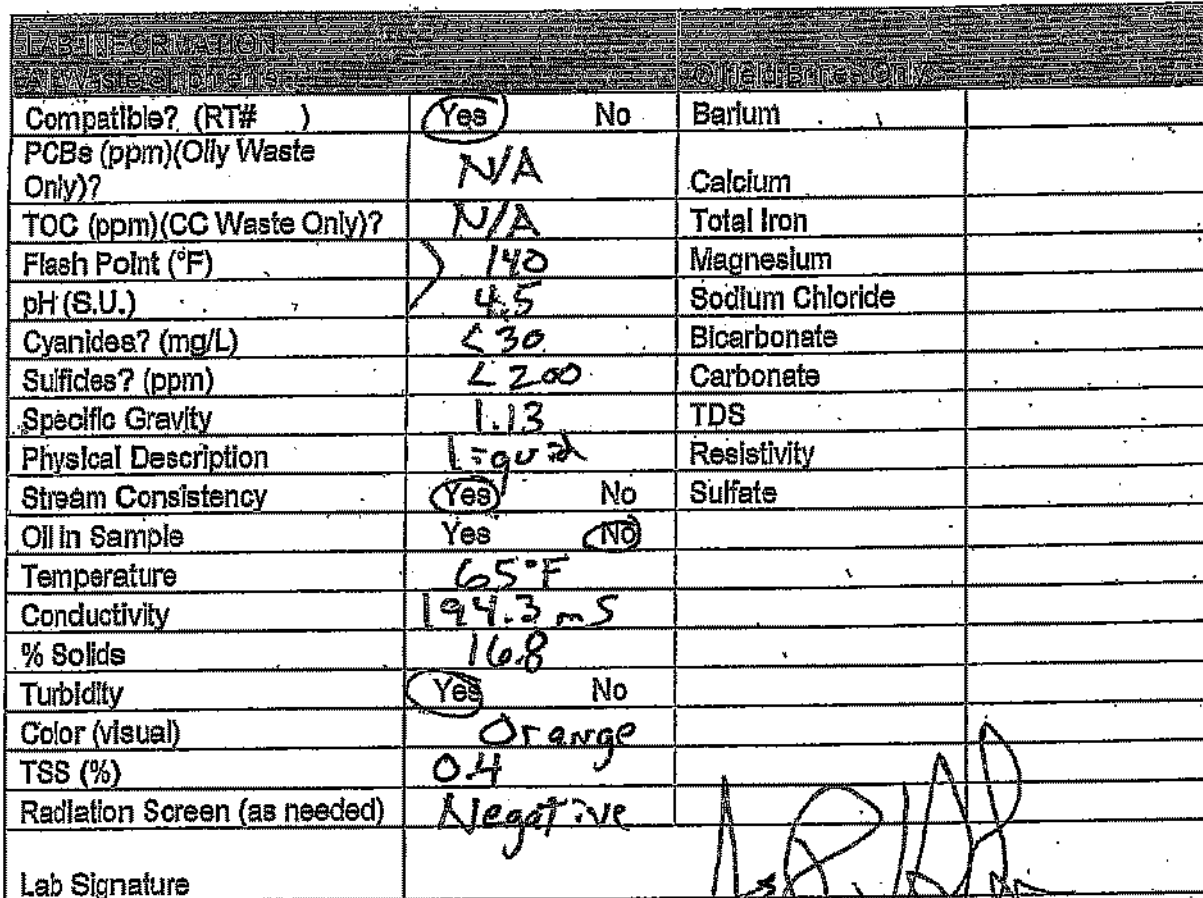 LAB INFORMATION:
All Waste Shipments Oilfield Brines Only
Compatible? (RT# ) Yes No Barium
PCBs (ppm)(Oily Waste
Only)? N/A Calcium
TOC (ppm)(CC Waste Only)? N/A Total Iron
Flash Point (°F) > 140 Magnesium
pH (S.U.) 4.5 Sodium Chloride
Cyanides? (mg/L) <30 Bicarbonate
Sulfides? (ppm) <200 Carbonate
Specific Gravity 1.13 TDS
Physical Description Liquid Resistivity
Stream Consistency Yes No Sulfate
Oil in Sample Yes No
Temperature 65°F
Conductivity 194.3 mS
% Solids 16.8
Turbidity Yes No
Color (visual) Orange
TSS (%) 0.4
Radiation Screen (as needed) Negative
Lab Signature